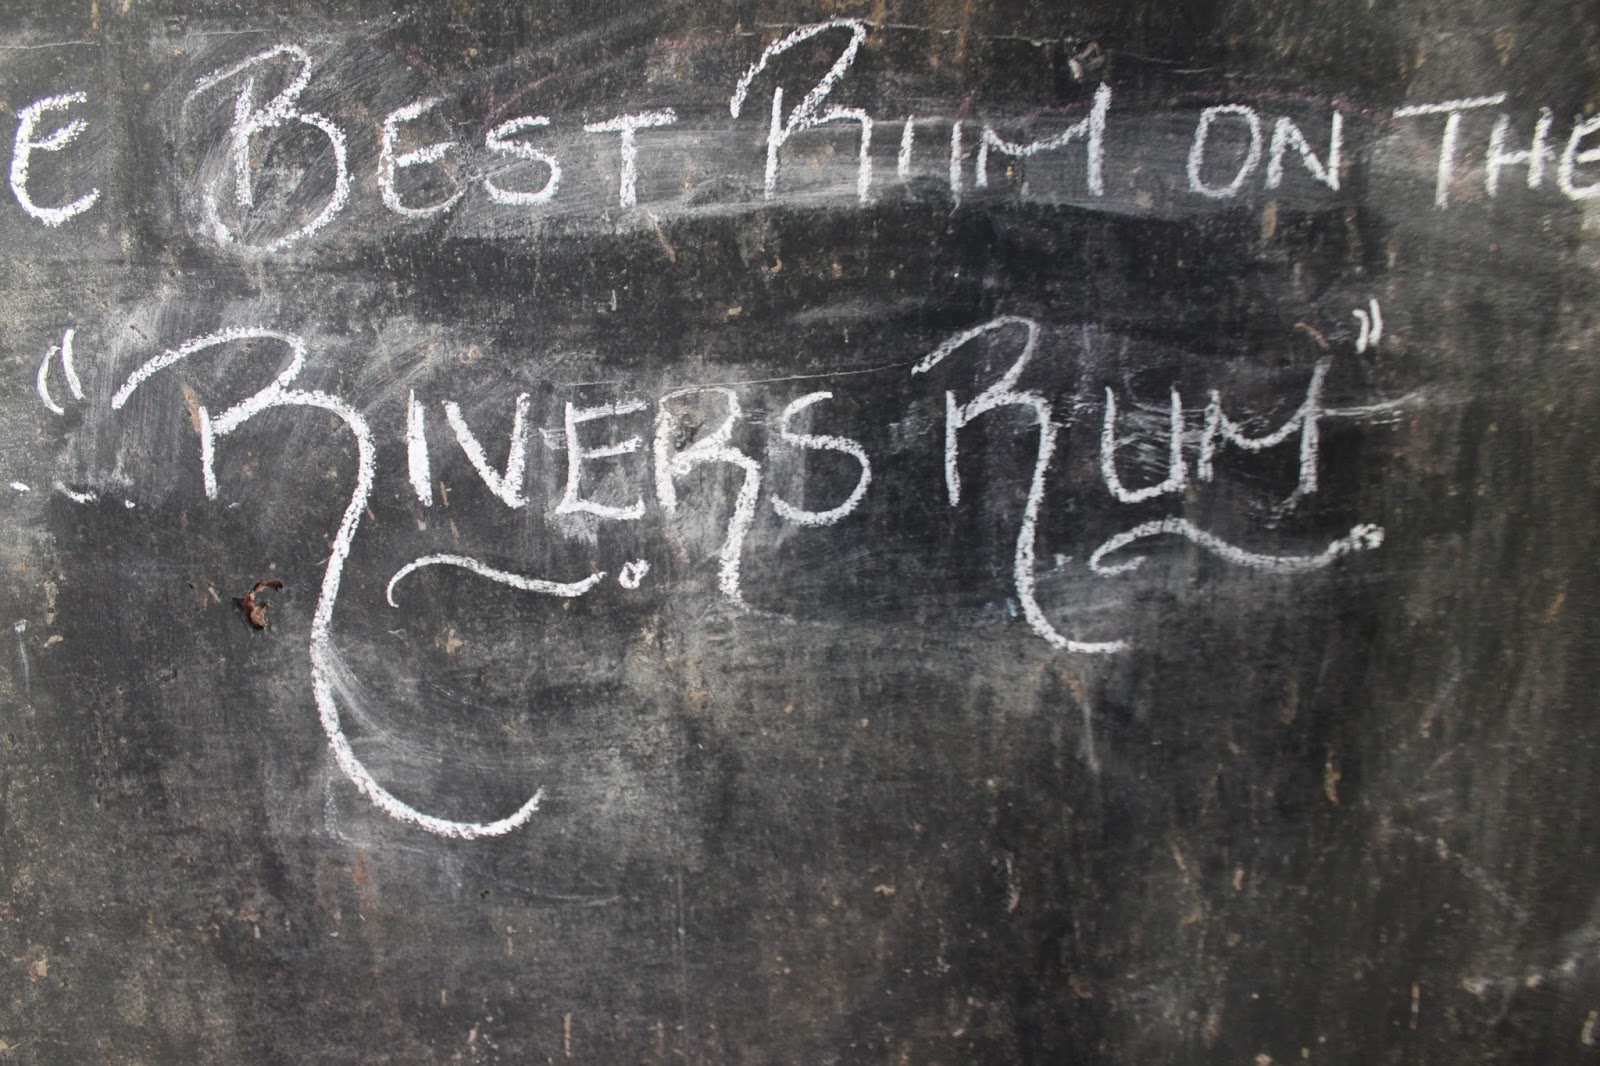 E BEST RUM ON THE
"RIVERS RUM"